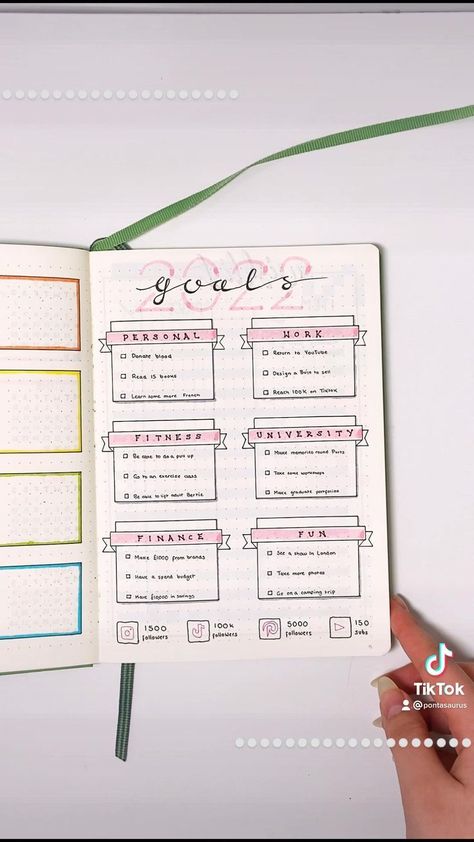 2022
goals
PERSONAL
Donate blood
Read 15 books
Learn some more French
WORK
Return to YouTube
Design a BuJo to sell
Reach 100K on TikTok
FITNESS
Be able to do a pull up
Go to an exercise class
Be able to lift adult Bertie
UNIVERSITY
Make memories round Ports
Take some workshops
Make graduate portfolios
FINANCE
Make £1000 from brands
Have a spend budget
Have £10000 in savings
FUN
See a show in London
Take more photos
Go on a camping trip
1500 followers
100k followers
5000 followers
150 subs
TikTok
@pontasaurus